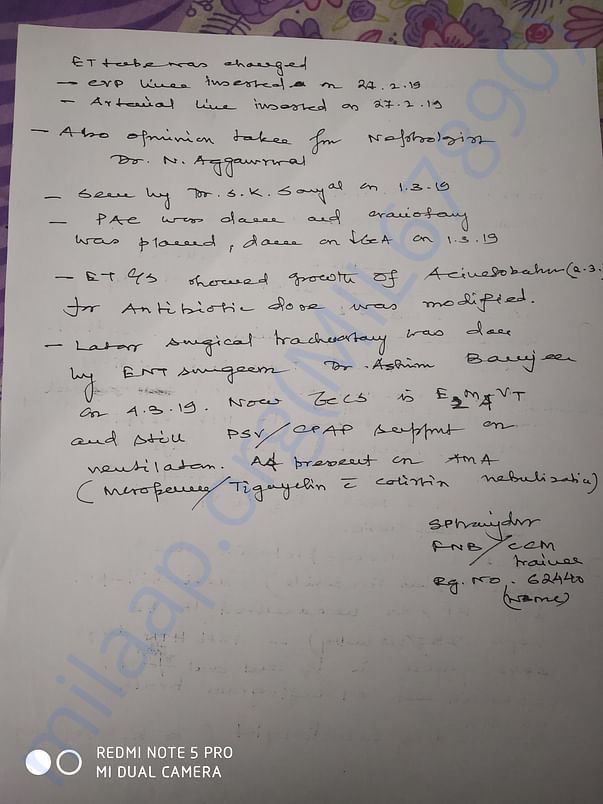 ET tube was changed
- CVP line inserted on 27.2.19
- Arterial line inserted on 27.2.19
- Also opninion taken fm Nephrologist
Dr. N. Aggawrwal
- Seen by Dr. S.K. Sanyal on 1.3.19
- PAC was done and craniotomy
was planed, done on ↓GA on 1.3.19
- ET C/s showed growth of Acinetobacter (2.3.
for Antibiotic dose was modified.
- Later surgical tracheostomy was done
by ENT surgeon Dr. Ashim Banerjee
on 4.3.19. Now GCS is E2M4VT
and still PSV/CPAP support on
ventilator. At present on AMA
(Meropenem/Tigaycelin c̄ colistin nebulization)
FNB/CCM
trainee
Rg. No. 62440
milaap.org(MIL678907
REDMI NOTE 5 PRO
MI DUAL CAMERA